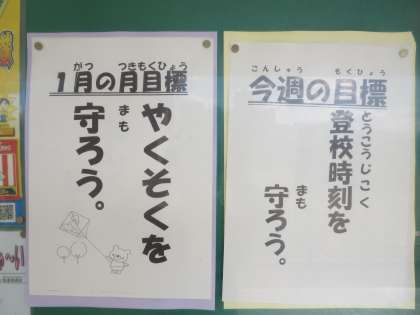 がつ つきもくひょう
1月の月目標
やくそくを
まも
守ろう。
こんしゅう もくひょう
今週の目標
とうこうじこく
登校時刻を
まも
守ろう。